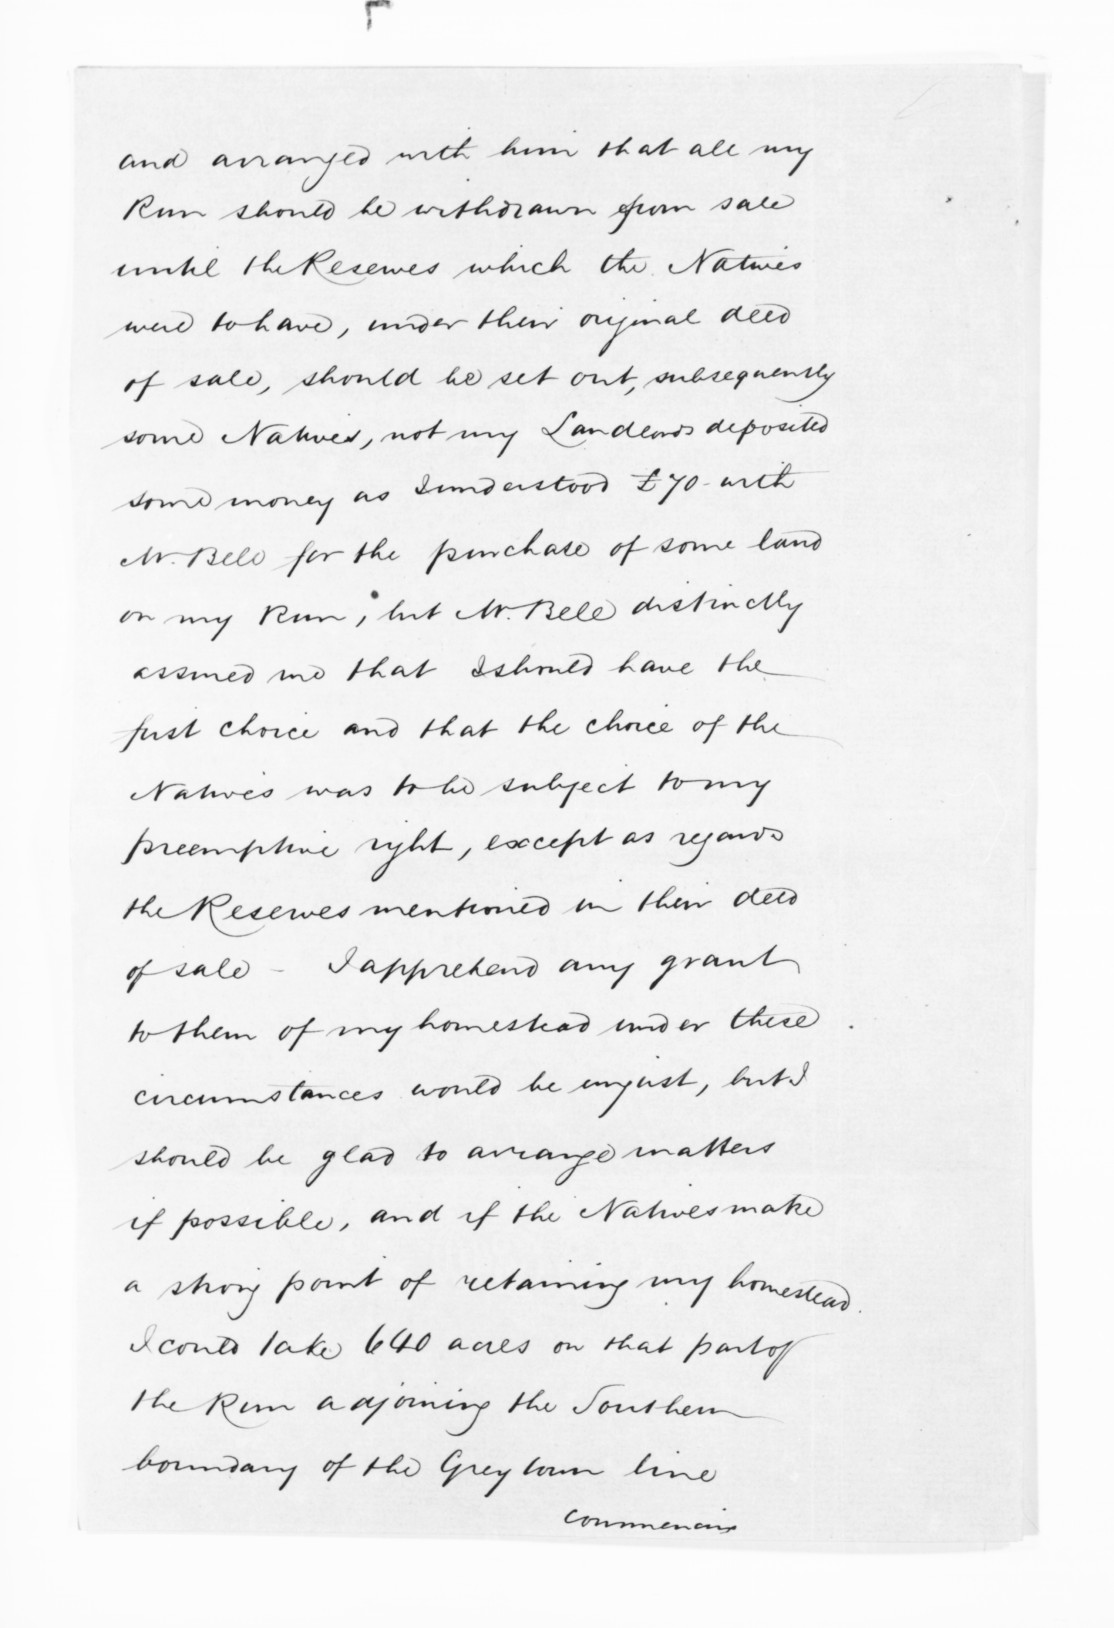 and arranged with him that all my
Run should be withdrawn from sale
until the Reserves which the Natives
were to have, under their original deed
of sale, should be set out, subsequently
some Natives, not my Landlords deposited
some money as I understood £70 - with
Mr. Bell for the purchase of some land
on my Run; but Mr. Bell distinctly
assured me that I should have the
first choice and that the choice of the
Natives was to be subject to my
preemptive right, except as regards
the Reserves mentioned in their deed
of sale - I apprehend any grant
to them of my homestead under these
circumstances would be unjust, but I
should be glad to arrange matters
if possible, and if the Natives make
a strong point of retaining my homestead.
I could take 640 acres on that part of
the Run adjoining the Southern
boundary of the Greytown line
commencing